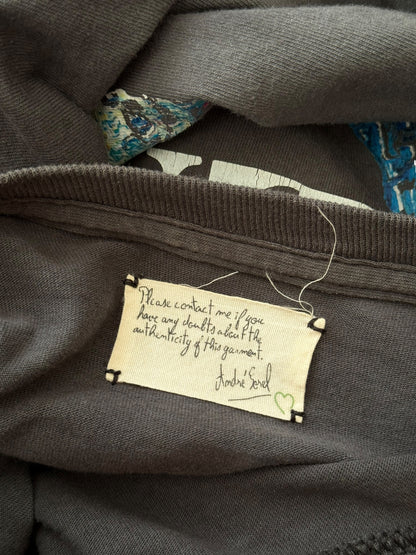 Please contact me if you
have any doubts about the
authenticity of this garment.
André Sorel